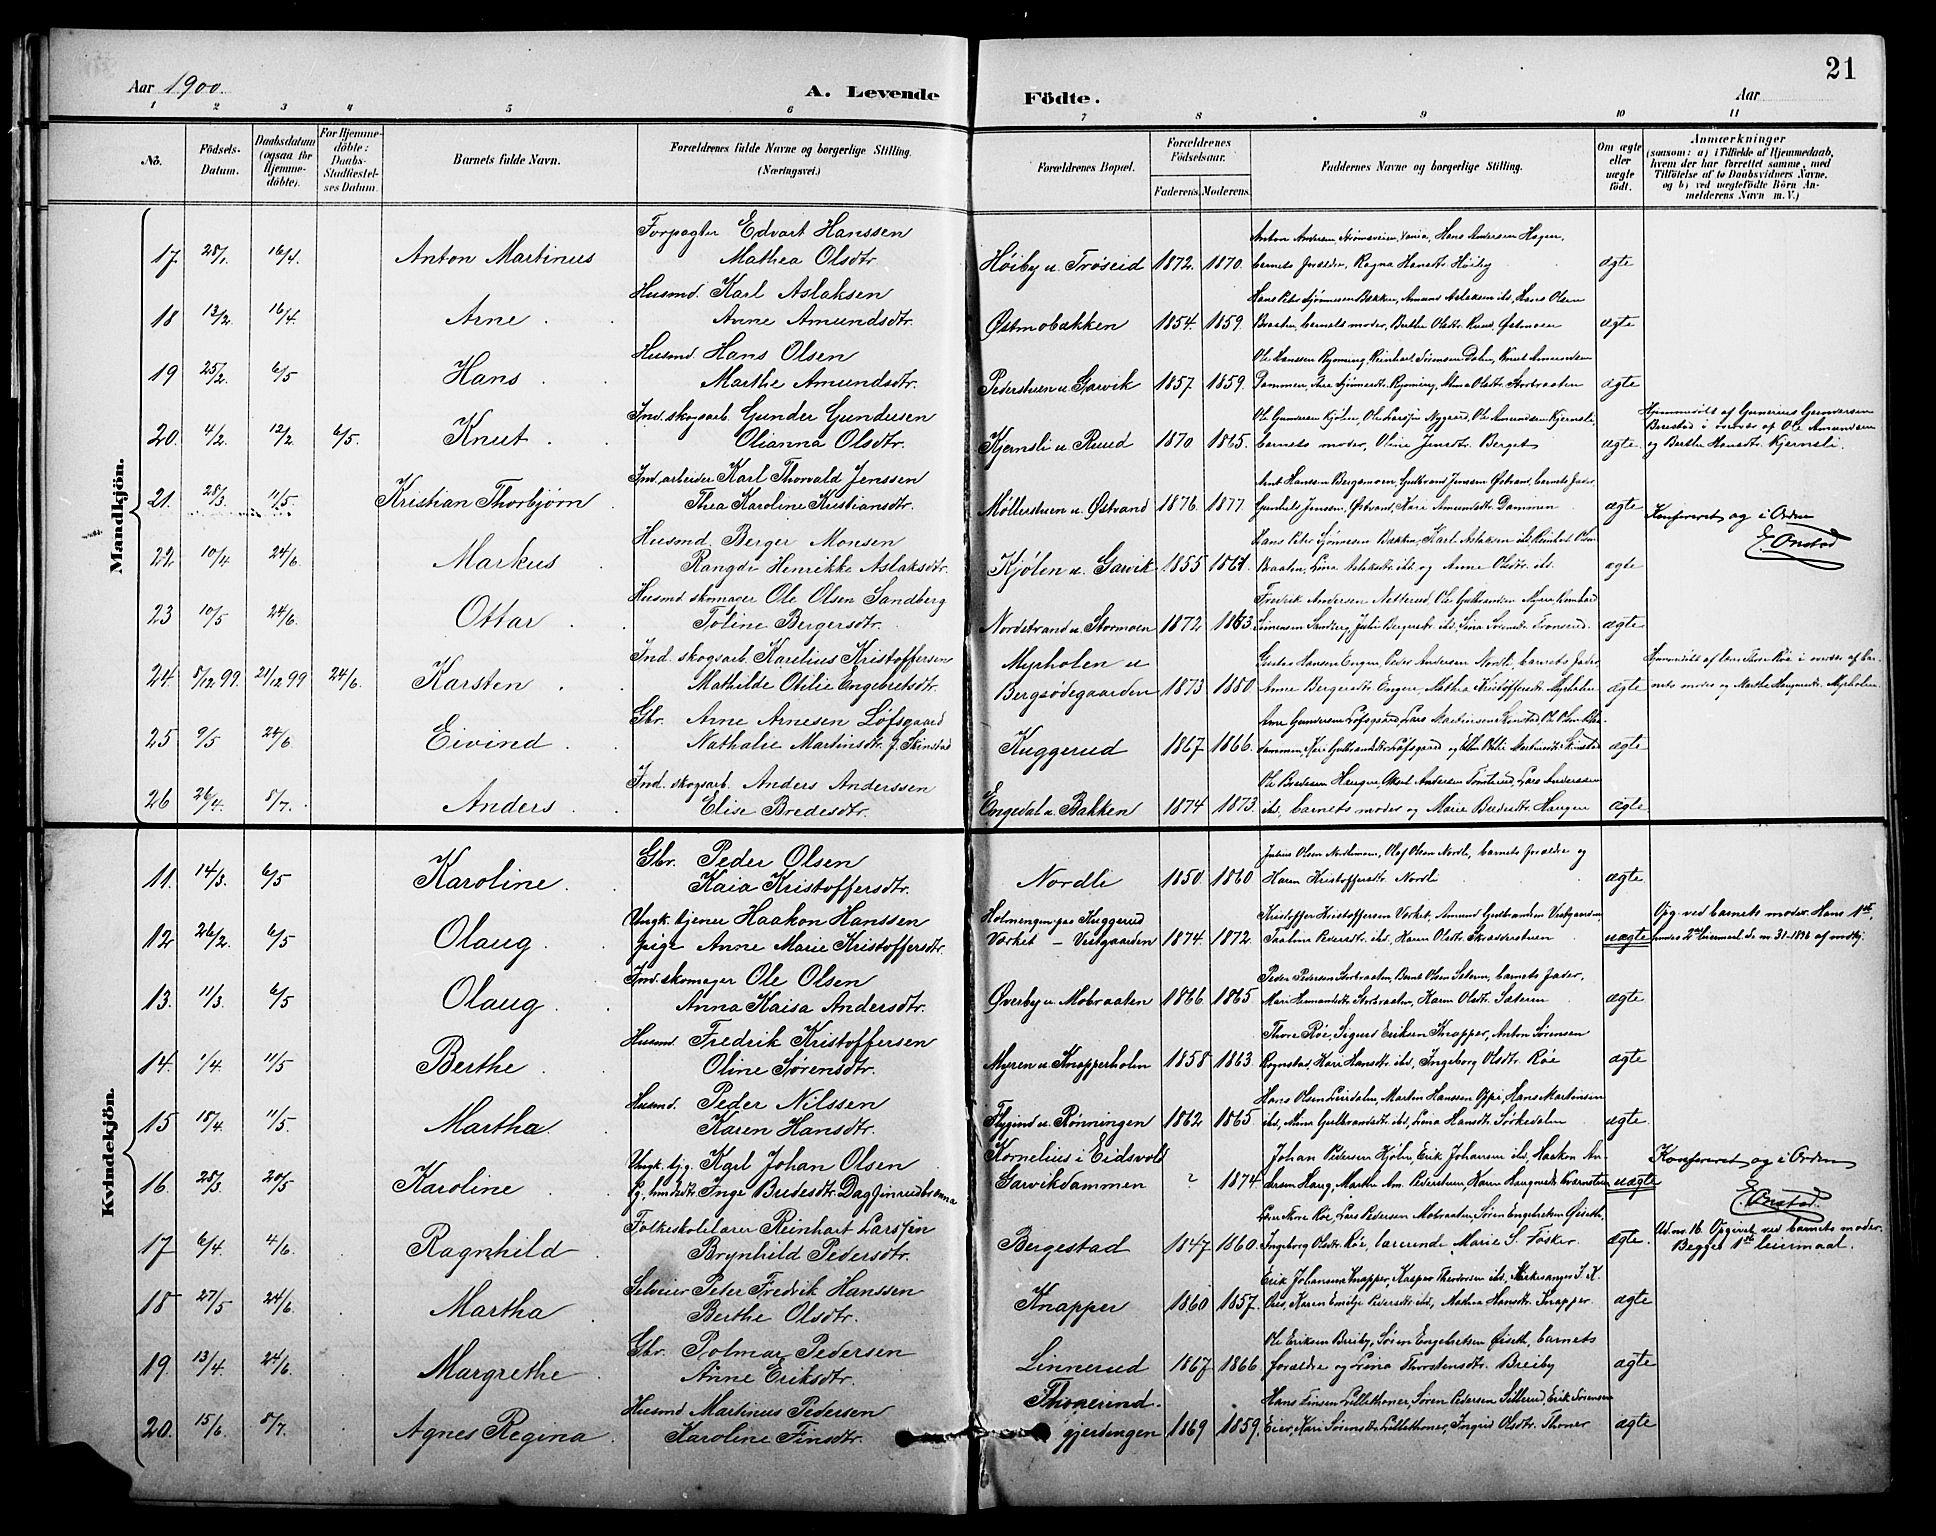 21
Aar 1900.
A. Levende Födte.
Aar
1 2 3 4 5 6 7 8 9 10 11
No.
Födsels-Datum.
Daabsdatum (ogsaa for Hjemmedöbte).
For Hjemmedöbte: Daabs-Stadfæstelses Datum.
Barnets fulde Navn.
Forældrenes fulde Navne og borgerlige Stilling. (Næringsvei.)
Forældrenes Bopæl.
Forældrenes Födselsaar.
Faderens. Moderens.
Faddernes Navne og borgerlige Stilling.
Om ægte eller uægte født.
Anmærkninger
(saasom: a) i Tilfælde af Hjemmedaab, hvem der har forrettet samme, med Tilföielse af to Daabsvidners Navne, og b) ved uægtefödte Börn Anmelderens Navn m. V.)
Mandkjön.
17. 28/1. 16/4. Anton Martinus Forpagter Edvart Hanssen
Mathea Olsdtr. Höiby u. Tröseid 1872. 1870. Anton Andersen Strømsveien, Vania, Hans Andersen Hagen,
barnets forældre, Ragna Hansdtr. Höiby ægte
18 13/2. 16/4. Arne Husmd. Karl Aslaksen
Anne Amundsdtr. Østmobakken 1854. 1859. Hans Peter Sjönnesen Bakken, Amund Aslaksen ibd, Hans Olsen
Braaten, barnets moder, Berthe Olsdtr. Ruud, Østmoen ægte
19 25/2. 6/5 Hans Husmd. Hans Olsen
Marthe Amundsdtr. Pederstuen u. Garvik 1857. 1859. Ole Hanssen Rypmyng, Reinhart Simensen Dalen, Knut Amundsen
Dammen, Ane Sjönnesdtr. Rypmyng, Anna Olsdtr. Storbraaten ægte
20. 4/2. 12/2 6/5. Knut Ind. skogsarb. Gunder Gundersen
Olianna Olsdtr. Kjernsli u. Ruud 1870 1865. Ole Gundersen Kjölen, Ole Larssen Nygaard, Ole Amundsen Kjernsli,
barnets moder, Oline Jensdtr. Berget ægte. Hjemmedöbt af Gunerius Gundersen
Berestad i overvær af Ole Amundsen
og Berthe Hansdtr. Kjernsli.
21. 28/3. 11/5. Kristian Thorbjørn Ind. arbeider Karl Thorvald Jenssen
Thea Karoline Kristiansdtr. Möllerstuen u. Østvand 1876. 1877. Arnt Hanssen Bergsmoen, Gulbrand Jensen Østvand, barnets fader,
Gunhild Jensen, Østvand, Kari Amundsdtr. Dammen ægte
Konfereret og i Orden
E. Onstad
22. 10/4 24/6. Markus Husmd. Berger Monsen
Rangdi Henrikke Aslaksdtr. Kjölen u. Garvik 1855 1861. Hans Peter Sjönnesen Bakken, Karl Aslaksen ibd, Reinhart Olsen
Braaten, Lina Aslaksdtr. ibd og Anne Olsdtr. ibd. ægte
23 10/5 24/6. Ottar Husmd. skomager Ole Olsen Sandberg
Toline Bergersdtr. Nordstrand u. Stormoen 1872 1863. Fredrik Andersen Netterud, Ole Gulbrandsen Myra, Reinhard
Simensen Sandberg, Julie Bergersdtr. ibd, Lina Sörensdtr. Fronsrud. ægte
24. 5/12 99. 21/12 99 24/6. Karsten Ind. skogsarb. Karelius Kristoffersen
Mathilde Otilie Engebretsdtr. Myrholen u
Bergsödegaarden 1873 1880 Gustav Hansen Engen, Peder Andersen Nordli, barnets fader,
Anne Bergersdtr. Engen, Mathea Kristoffersdtr. Myrholen ægte Hjemmedöbt af lærer Thore Röe i overvær af bar-
nets moder og Marthe Haugensdtr. Myrholen.
25 9/5 24/6. Eivind Gbr. Arne Arnesen Löfsgaard
Nathalie Martinsdtr. f. Skinstad Kuggerud 1867 1866. Arne Gundersen Löfsgaard, Lars Martinsen Skinstad, Ole Olsen
Kari Gulbrandsdtr. Löfsgaard og Ellen Otilie Martinsdtr. Skinstad ægte
26 26/4. 8/7. Anders Ind. skogsarb. Anders Anderssen
Elise Bredesdtr. Engedal u. Bakken 1874 1873 Ole Bredesen Haugen, Aksel Andersen Tomterud, Lars Anderssen
ibd, barnets moder og Marie Bredesdtr. Haugen ægte
Kvindekjön.
11. 14/3. 6/5 Karoline Gbr. Peder Olsen
Kaia Kristoffersdtr. Nordli 1850. 1860 Julius Olsen Nordlimoen, Olaf Olsen Nordli, barnets forældre og
Karen Kristoffersdtr. Nordli ægte
12. 26/2. 6/5 Olaug Ungk. tjener Haakon Hanssen
Pige Anne Marie Kristoffersdtr. Holmengen paa Kuggerud
Vorket – Vestgaarden 1874. 1872. Kristoffer Kristoffersen Vorket, Amund Gulbrandsen Vestgaarden
Taalina Pedersdtr. ibd, Karen Olsdtr. Skrædderstuen uægte Opg. ved barnets moder. Hans 1ste,
hendes 2det leiermaal
13. 11/3. 6/5 Olaug Ind. skomager Ole Olsen
Anna Kaisa Andersdtr. Øverby u. Mobraaten 1866 1865 Peder Pedersen Storbraaten, Bernt Olsen Sæteren, barnets fader,
Mari Hermandsdtr. Storbraaten, Karen Olsdtr. Sæteren ægte
14. 1/4. 11/5 Berthe Husmd. Fredrik Kristoffersen
Oline Sørensdtr. Myren u. Knapperholen 1858 1863 Thore Röe, Sigurd Eriksen Knapper, Anton Sörensen
Rognstad, Kari Hansdtr. ibd, Ingeborg Olsdtr. Röe ægte
15 18/4. 11/5. Martha Husmd. Peder Nilssen
Karen Hansdtr. Flygind u. Rönningen 1862 1865 Hans Olsen Leirdalen, Martin Hanssen Oppi, Hans Martinsen
ibd, Mina Gulbrandsdtr. ibd, Lina Hansdtr. Sörkedalen ægte
16. 28/3. 20/5 Karoline Ungk. tjg. Karl Johan Olsen
Pg. Inge Bredesdtr. Dagfinrudbrenna Kornelius i Eidsvold
Garvikdammen – 1874. Johan Pedersen Kjölen, Erik Johansen ibd, Haakon An-
dersen Haug, Marthe Am. Pederstuen, Karen Haugensdtr. Kværnstuen uægte Konfereret og i Orden
E. Onstad.
17 6/4. 4/6. Ragnhild Folkeskolelærer Reinhart Larssen
Brynhild Pedersdtr. Bergestad 1847 1860. Lærer Thore Röe, Lars Pedersen Mobraaten, Sören Engebretsen Øiseth,
Ingeborg Olsdtr. Röe, lærerinde Marie S. Fosker. ægte. Ad. nr. 16. Opgivet ved barnets moder.
Begges 1ste leiermaal.
18 27/5 24/6. Martha Selveier Peter Fredrik Hanssen
Berthe Olsdtr. Knapper 1860 1857. Erik Johansen Knapper, Kasper Theodorsen ibd, Kirkesanger J. K.
Aas, Karen Emilje Pedersdtr. ibd, Mathea Hansdtr. Knapper. ægte
19. 13/4. 24/6. Margrethe Gbr. Polmar Pedersen
Anne Eriksdtr. Linnerud 1867 1866 Ole Eriksen Breiby, Sören Engebretsen Øiseth, barnets
forældre og Lina Thorstensdtr. Breiby ægte
20. 15/6. 8/7. Agnes Regina Husmd. Martinus Pedersen
Karoline Finsdtr. Thonerind-
gjerdingen 1869 1859. Hans Finsen Lillethoner, Sören Pedersen Sillerud, Erik Sörensen
Eier, Kari Sörensdtr. Lillethoner, Ingrid Olsdtr. Thoner ægte